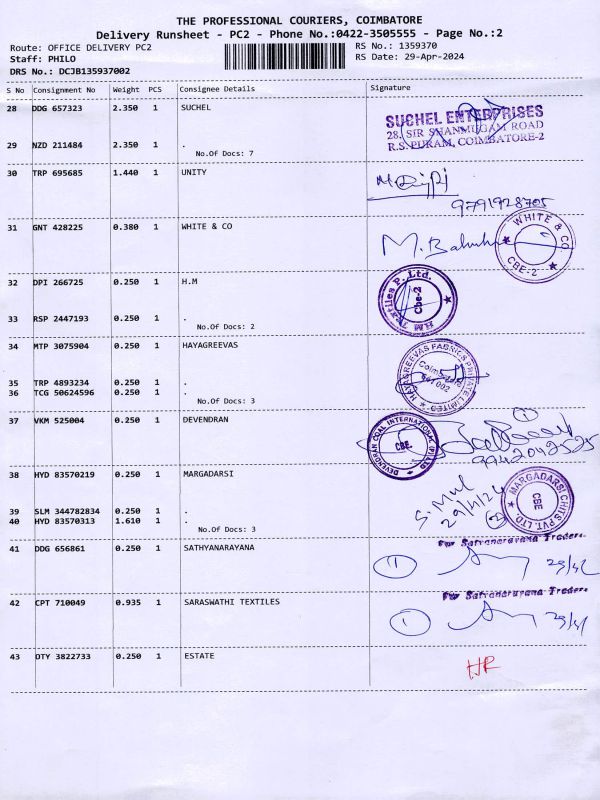 THE PROFESSIONAL COURIERS, COIMBATORE
Delivery Runsheet - PC2 - Phone No.:0422-3505555 - Page No.:2
Route: OFFICE DELIVERY PC2
RS No.: 1359370
Staff: PHILO
RS Date: 29-Apr-2024
DRS No.: DCJB135937002
S No Consignment No Weight PCS Consignee Details Signature
28 DDG 657323 2.350 1 SUCHEL
SUCHEL ENTERPRISES
28, SIR SHANMUGAM ROAD
R.S. PURAM, COIMBATORE-2
29 NZD 211484 2.350 1 .
No.Of Docs: 7
30 TRP 695685 1.440 1 UNITY
9791928705
31 GNT 428225 0.380 1 WHITE & CO
WHITE & CO
CBE-2
32 DPI 266725 0.250 1 H.M
H.M Textiles P. Ltd.
Cbe-2
33 RSP 2447193 0.250 1 .
No.Of Docs: 2
34 MTP 3075904 0.250 1 HAYAGREEVAS
HAYAGREEVAS FABRICS PRIVATE LIMITED
35 TRP 4893234 0.250 1 .
36 TCG 50624596 0.250 1 .
No.Of Docs: 3
37 VKM 525004 0.250 1 DEVENDRAN
DEVENDRAN COAL INTERNATIONAL (P) LTD
CBE.
1
9942042525
38 HYD 83570219 0.250 1 MARGADARSI
MARGADARSI CHITS PVT. LTD
CBE
39 SLM 344782834 0.250 1 .
29/4/24
40 HYD 83570313 1.610 1 .
No.Of Docs: 3
41 DDG 656861 0.250 1 SATHYANARAYANA
For Satyanarayana Traders
1
42 CPT 710049 0.935 1 SARASWATHI TEXTILES
For Satyanarayana Traders
1
43 OTY 3822733 0.250 1 ESTATE
HR